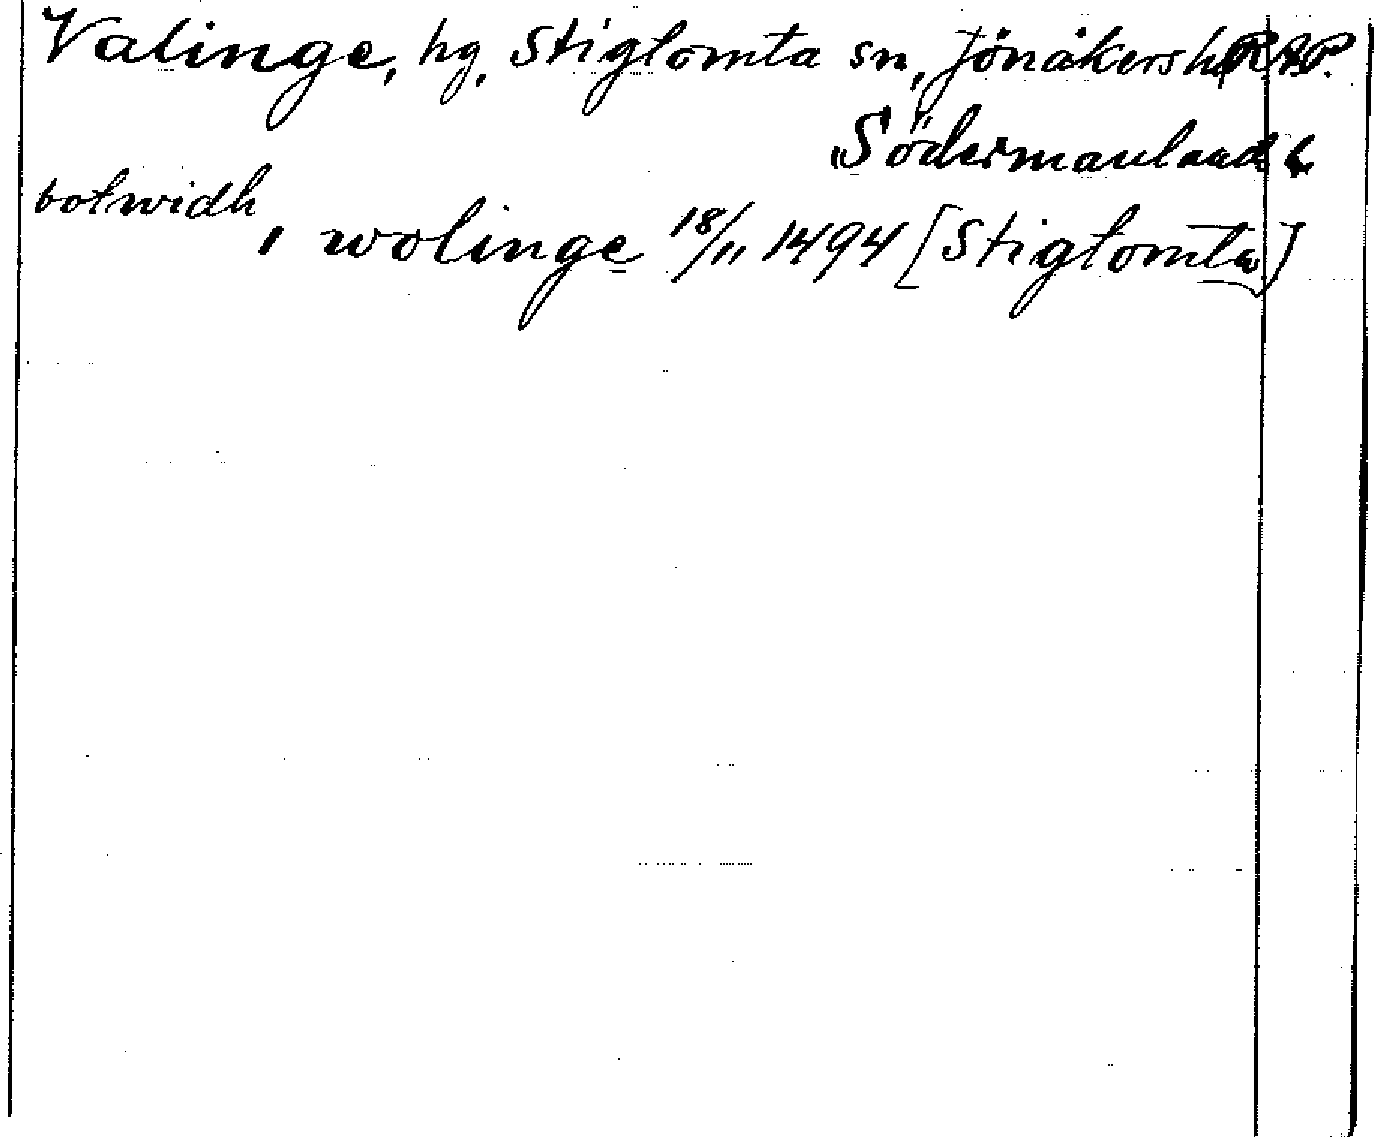 Valinge, hg. Stigtomta sn, Jönåkers hd RAP.
Södermanland
botwidh i wolinge 18/11 1494 [Stigtomta]